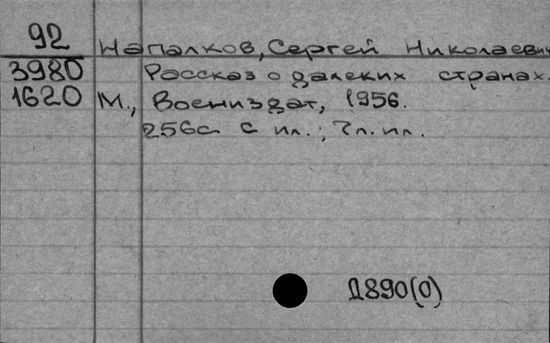 92 Напалков, Сергей Николаевич
3980 Рассказ о далеких странах.
1620 М., Воениздат, 1956.
256с с ил.; 7л. ил.
Д890(0)